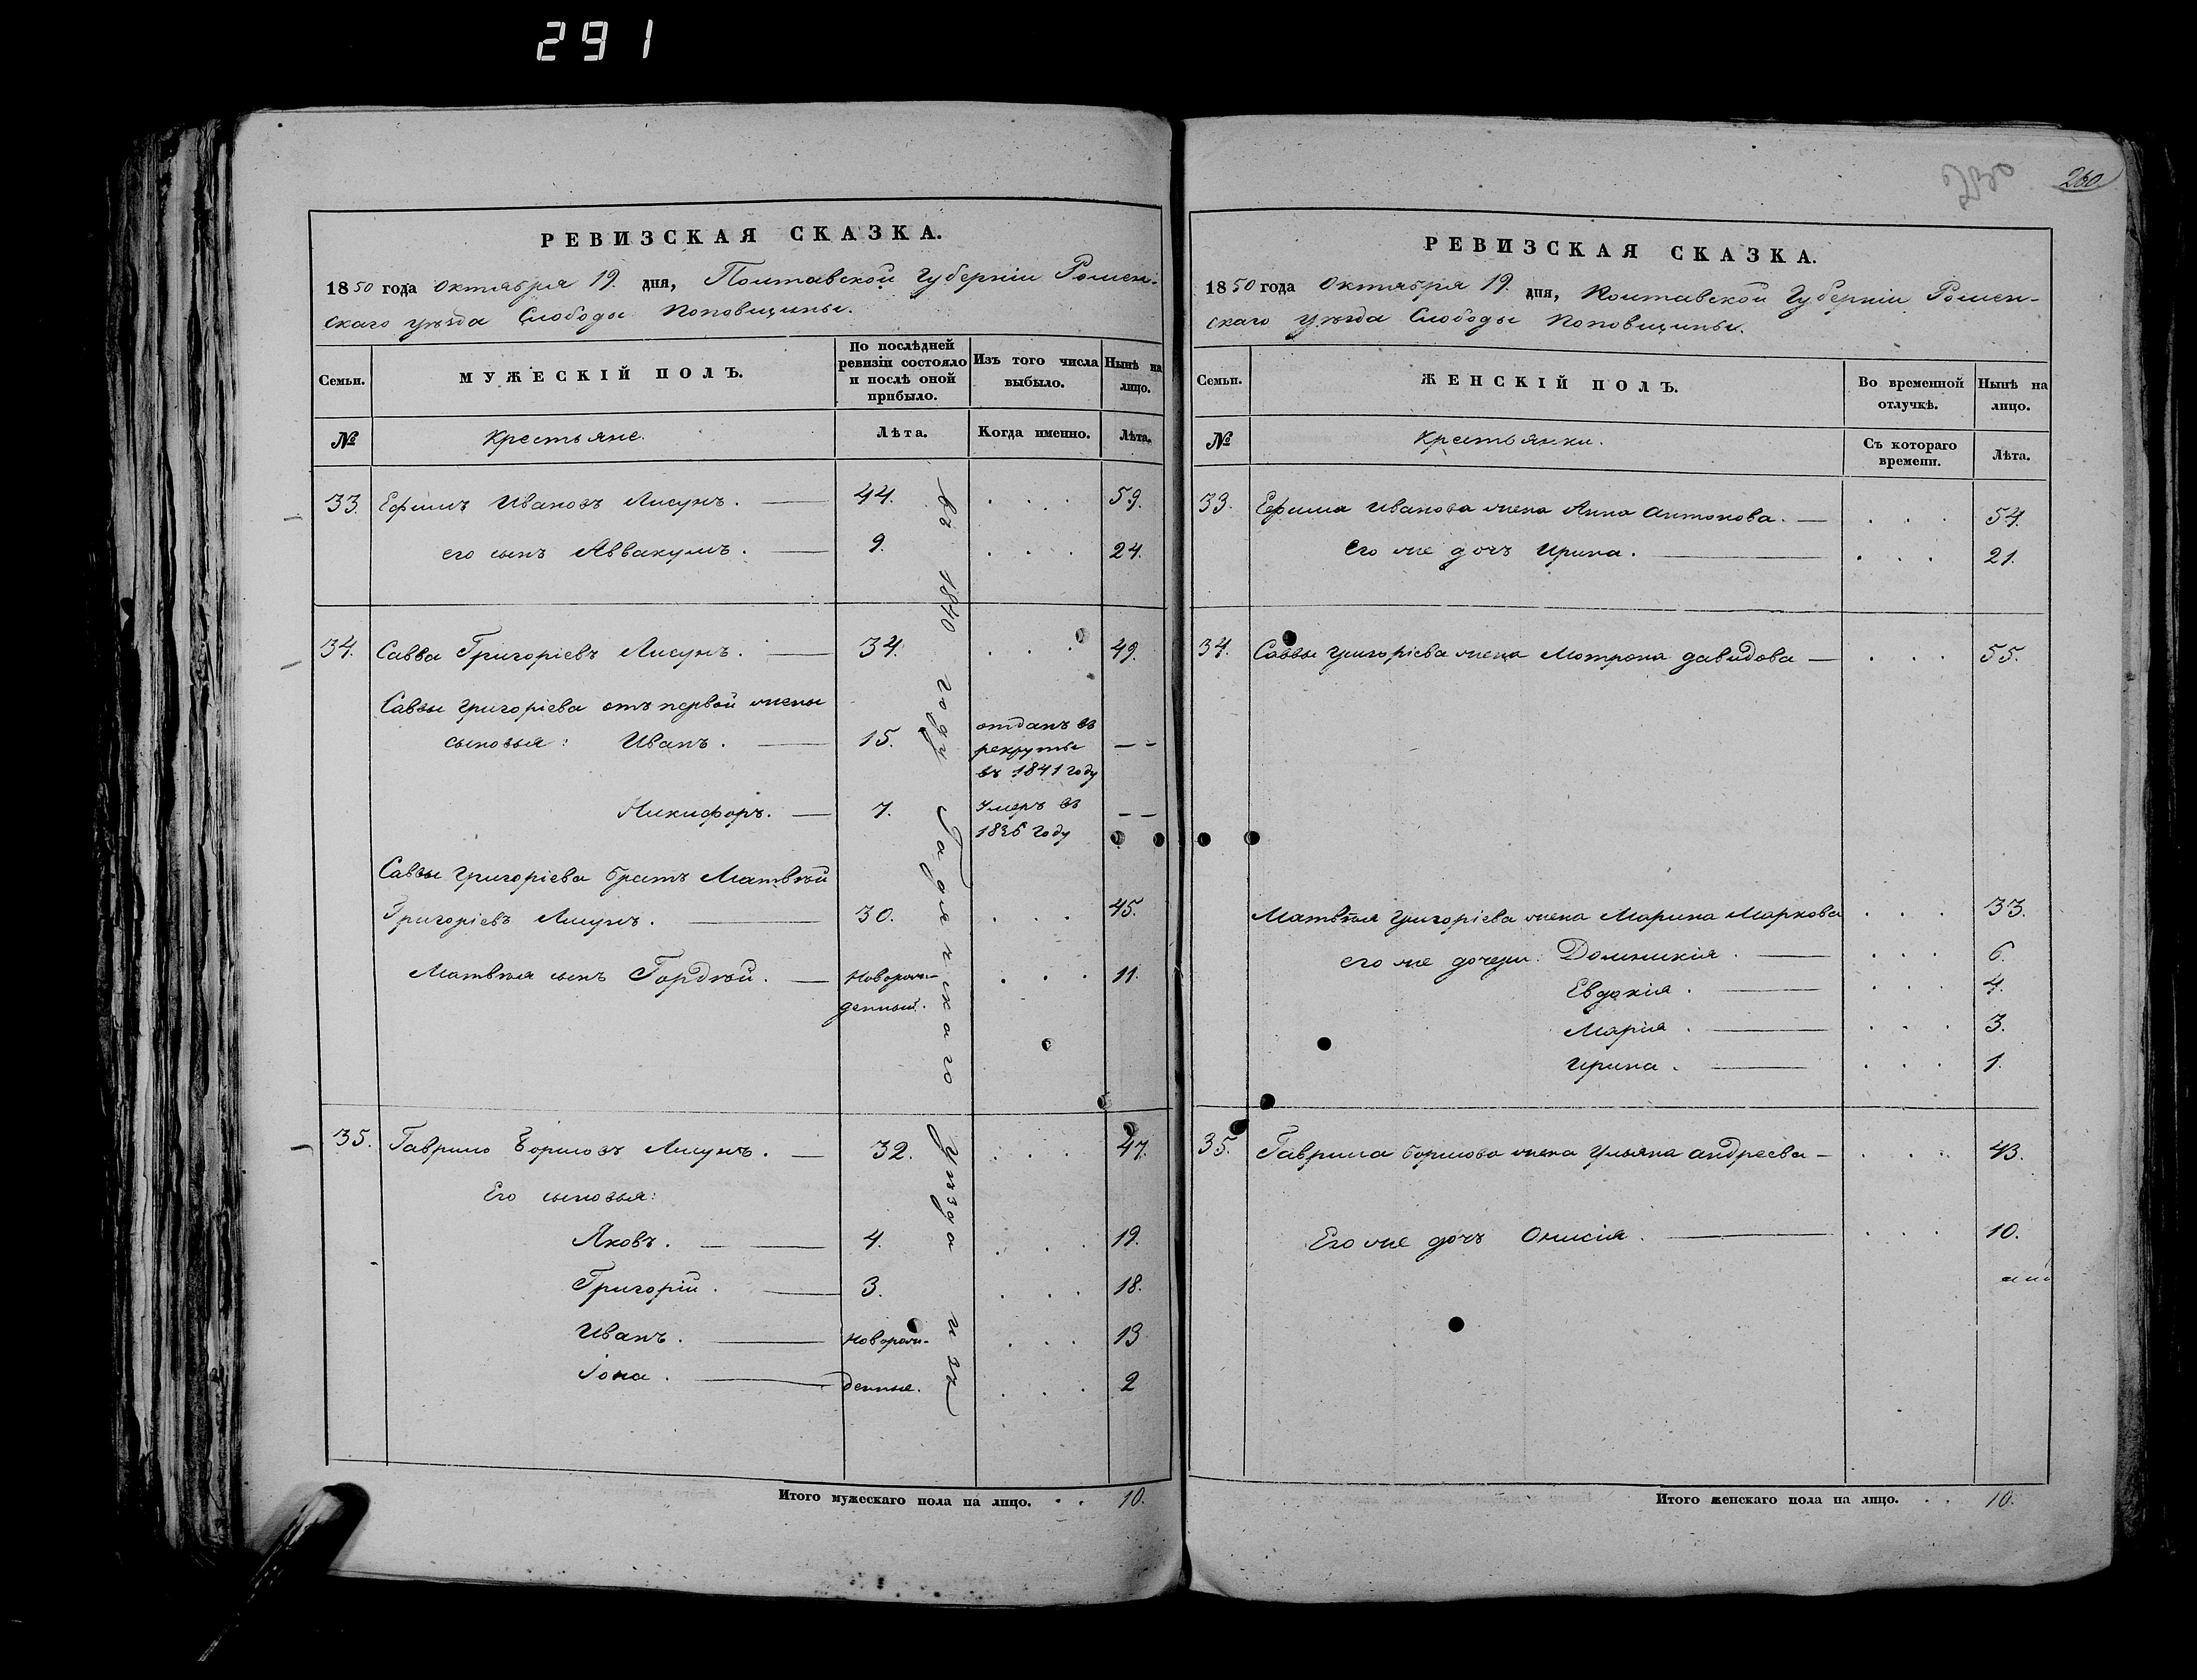 291
РЕВИЗСКАЯ СКАЗКА.
1850 года Октября 19. дня, Полтавской Губерніи Ромен-
скаго уѣзда Слободы Поповщины.
Семьи.
МУЖЕСКІЙ ПОЛЪ.
По послѣдней ревизіи состояло и послѣ оной прибыло.
Изъ того числа выбыло.
Нынѣ на лицо.
№
Крестьяне.
Лѣта.
Когда именно.
Лѣта.
33. Ефимъ Ивановъ Лисунъ. 44. . . . 59.
его сынъ Аввакумъ. 9. . . . 24.
34. Савва Григоріевъ Лисунъ. 34. . . . 49.
Саввы Григоріева отъ первой жены
сыновья: Иванъ. 15. отданъ въ рекруты въ 1841 году — -
Никифоръ. 7. Умеръ въ 1836 году — —
Саввы Григоріева братъ Матвѣй
Григоріевъ Лисунъ. 30. . . . 45.
Матвѣя сынъ Гордѣй. Новорож-денный. . . . 11.
35. Гаврило Борисовъ Лисунъ. 32. . . . 47.
Его сыновья:
Яковъ. 4. . . . 19.
Григорій. 3. . . . 18.
Иванъ. Новорож- . . . 13
Іона. денные. . . . 2
въ 1840 году Гадячскаго уѣзда изъ
Итого мужескаго пола на лицо. . . 10.
260.
РЕВИЗСКАЯ СКАЗКА.
1850 года Октября 19. дня, Полтавской Губерніи Ромен-
скаго уѣзда Слободы Поповщины.
Семьи.
ЖЕНСКІЙ ПОЛЪ.
Во временной отлучкѣ.
Нынѣ на лицо.
№
Крестьянки.
Съ котораго времени.
Лѣта.
33. Ефима Иванова жена Анна Антонова. . . . 54.
Его же дочь Ирина. . . . 21.
34. Саввы Григоріева жена Мотрона Давидова . . . 55.
Матвѣя Григоріева жена Марина Маркова . . . 33.
его же дочери: Домникія. . . . 6.
Евдокія. . . . 4.
Марія. . . . 3.
Ирина. . . . 1.
35. Гаврила Борисова жена Ульяна Андреева . . . 43.
Его же дочь Онисія. . . . 10.
Итого женскаго пола на лицо. . . 10.